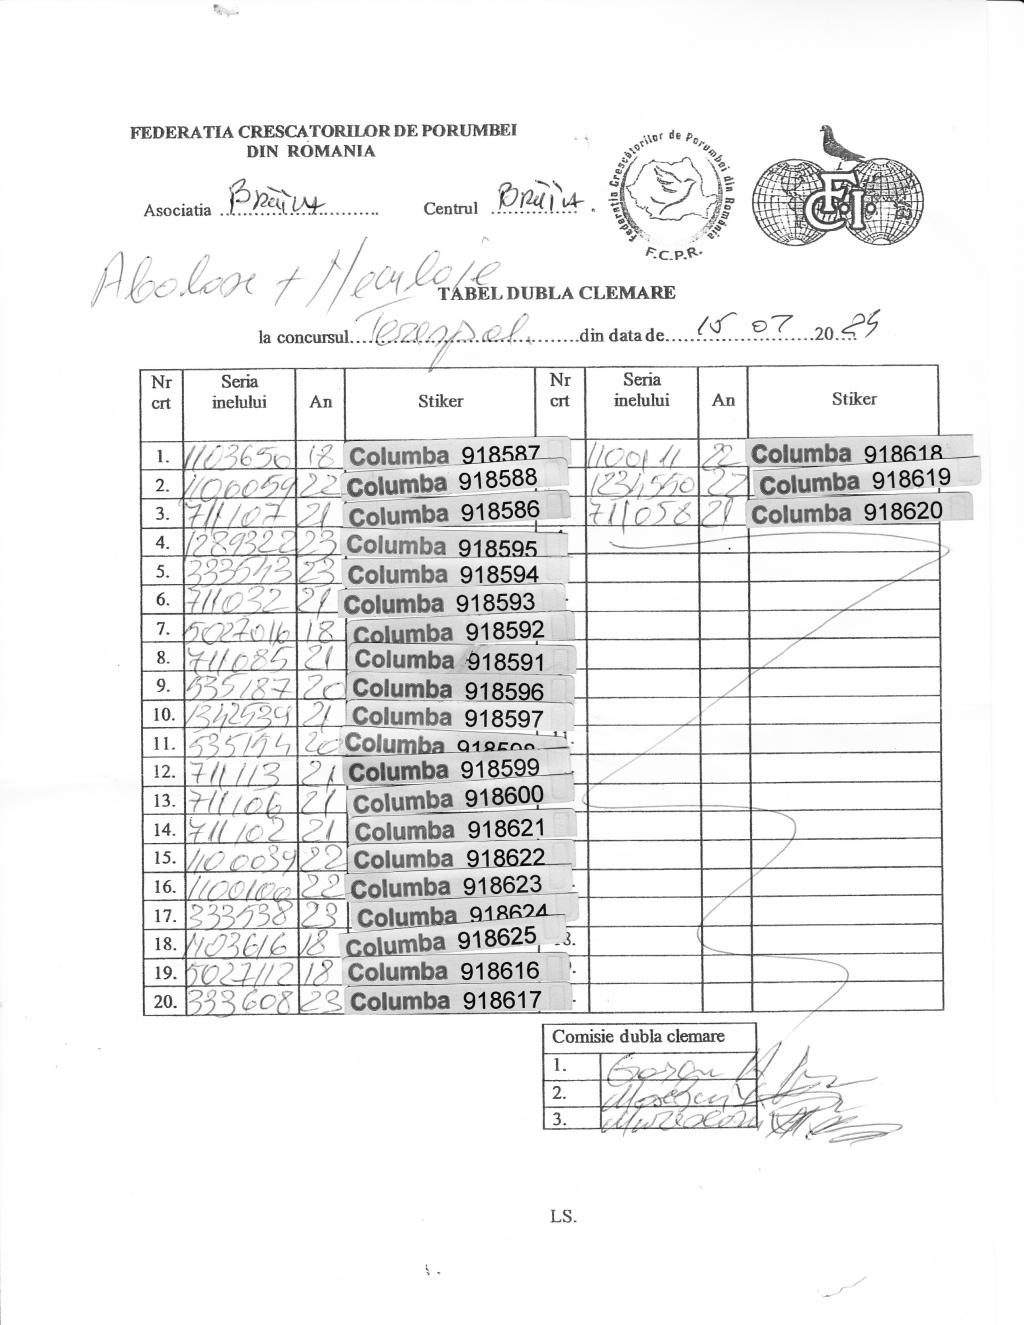 FEDERATIA CRESCATORILOR DE PORUMBEI
DIN ROMANIA
Asociatia Brăila Centrul Brăila
Federația Crescătorilor de Porumbei din România
F.C.P.R.
FCI
TABEL DUBLA CLEMARE
la concursul Terespol din data de 15 07 20
Nr crt Seria inelului An Stiker Nr crt Seria inelului An Stiker
1. 1103650 18 Columba 918587 1100111 22 Columba 918618
2. 1100059 22 Columba 918588 1234550 22 Columba 918619
3. 711107 21 Columba 918586 711058 21 Columba 918620
4. 1289322 23 Columba 918595
5. 333543 23 Columba 918594
6. 711032 21 Columba 918593
7. 5027016 18 Columba 918592
8. 711085 21 Columba 918591
9. 535187 20 Columba 918596
10. 1342539 21 Columba 918597
11. 535194 20 Columba
12. 711113 21 Columba 918599
13. 711106 21 Columba 918600
14. 711102 21 Columba 918621
15. 1100039 22 Columba 918622
16. 1100100 22 Columba 918623
17. 333538 23 Columba 918624
18. 1103616 18 Columba 918625
19. 5027112 18 Columba 918616
20. 333608 23 Columba 918617
Comisie dubla clemare
1.
2.
3.
LS.